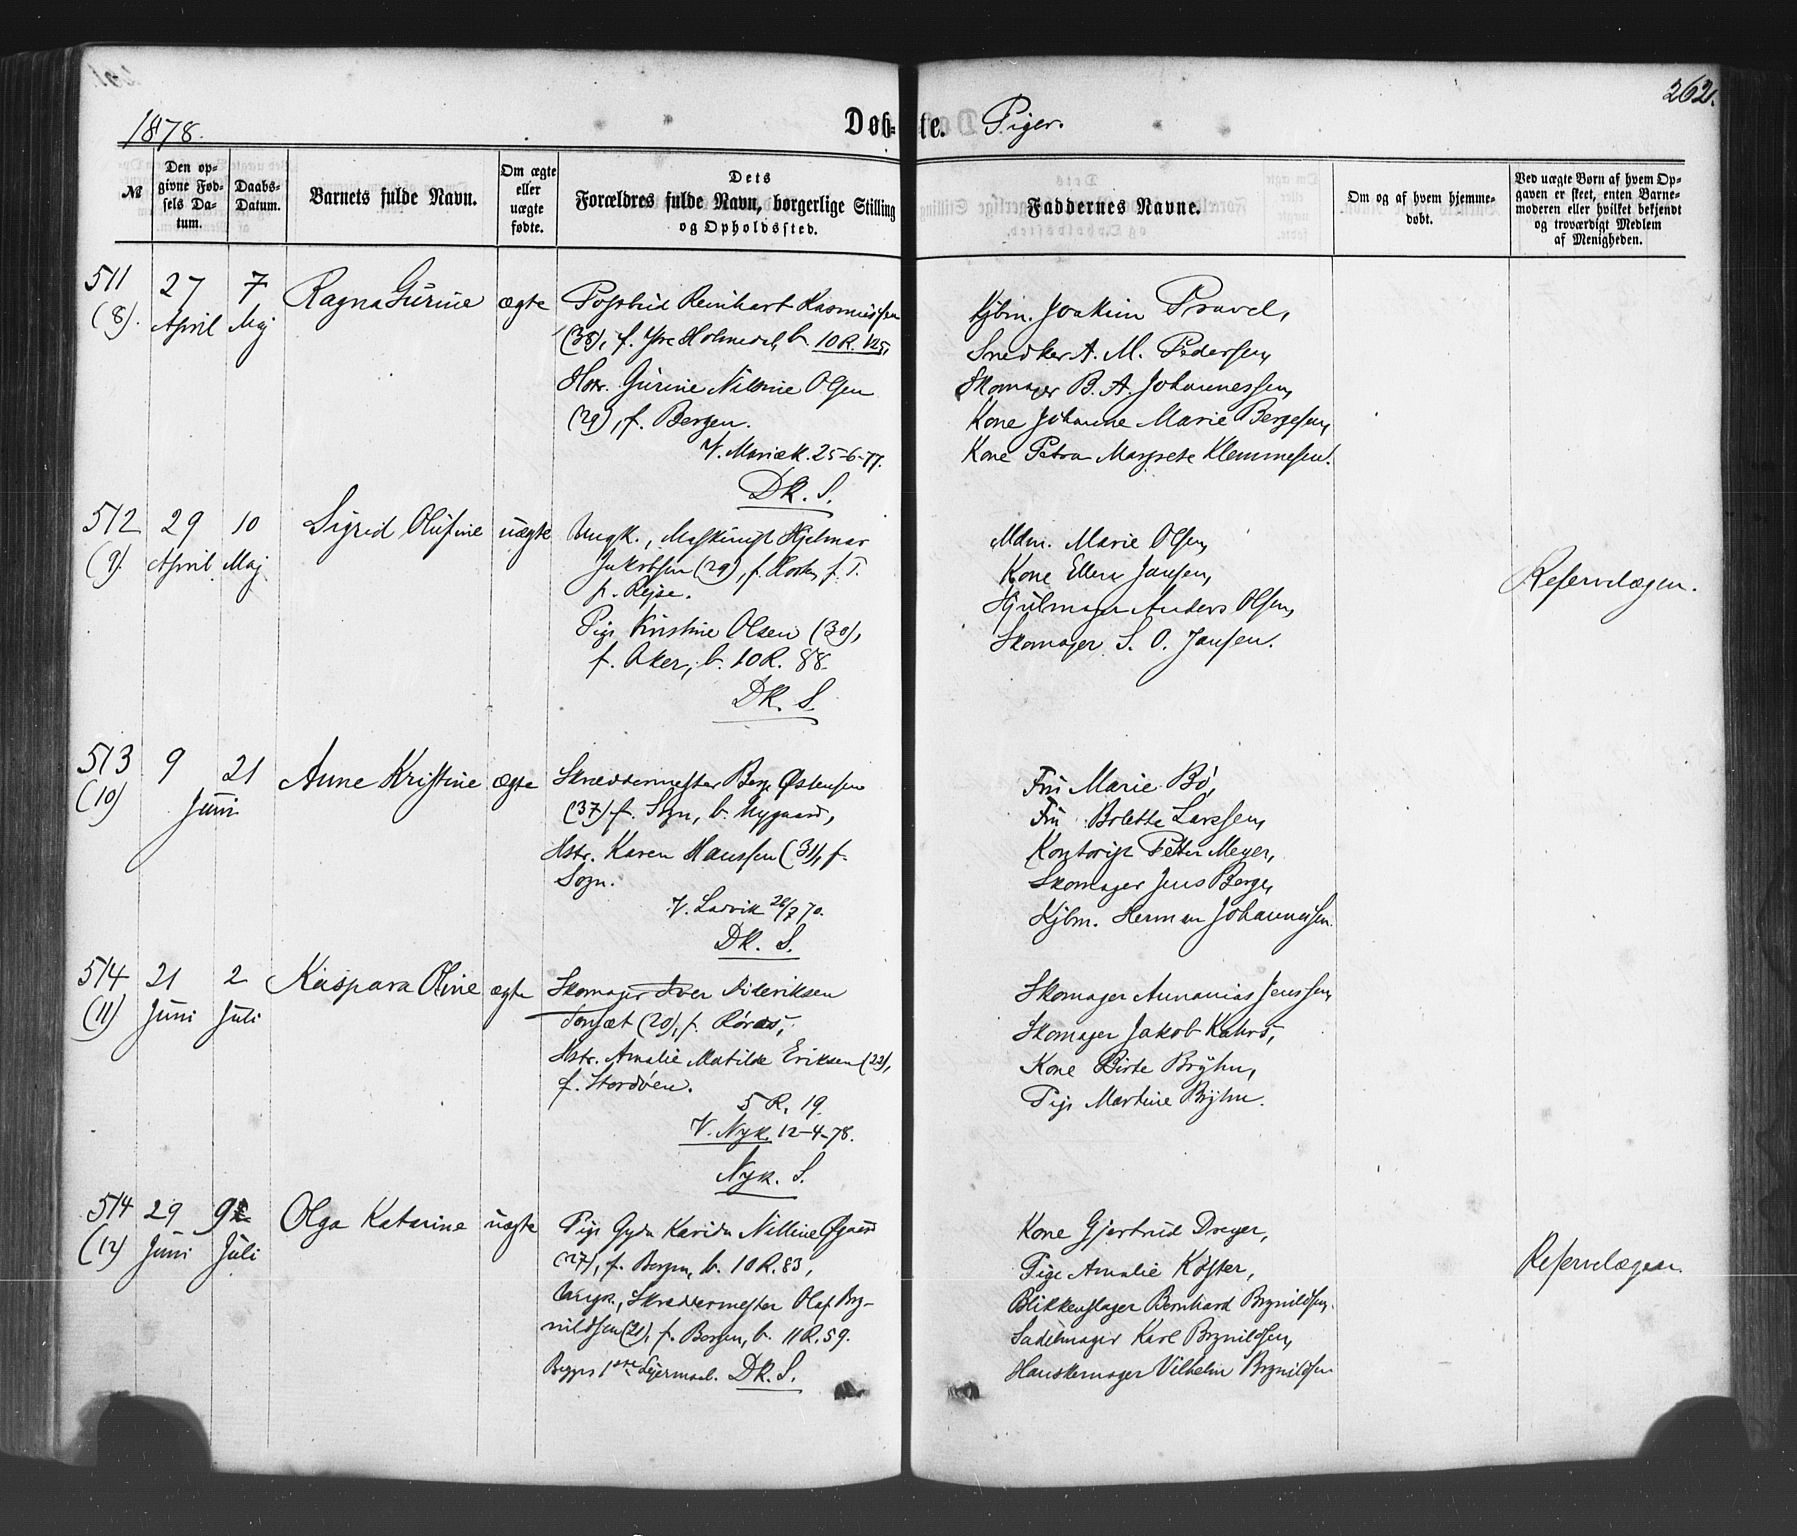 262.
1878.
Døbte. Piger.
№
Den opgivne Fødsels Datum.
Daabs-Datum.
Barnets fulde Navn.
Om ægte eller uægte fødte.
Dets Forældres fulde Navn, borgerlige Stilling og Opholdssted.
Faddernes Navne.
Om og af hvem hjemmedøbt.
Ved uægte Børn af hvem Opgaven er skeet, enten Barnemoderen eller hvilket bekjendt og troværdigt Medlem af Menigheden.
511
(8).
27 April
7 Maj
Ragna Gurine
ægte
Reinhart Rasmussen
(38), f. Ytre Holmedal, b. 10 R. 125,
Hstr. Gurine Nilsine Olsen
(29), f. Bergen.
V. Mariæk. 25-6-77.
DK. S.
Kjbm. Joakim Pravel,
Snedker A. M. Pedersen,
Skomager B. A. Johannessen,
Kone Johanne Marie Bergesen,
Kone Petra Margrete Klemmesen.
512
(9).
29 April
10 Maj
Sigrid Olufine
uægte
Ungk., Maskinist Hjelmar
Jakobsen (29), f. f. T.
p. Rejse.
Pige Kristine Olsen (30),
f. Aker, b. 10 R. 88.
DK. S.
Mdm. Marie Olsen,
Kone Ellen Jansen,
Hjulmager Anders Olsen,
Skomager S. O. Jansen.
Reservelægen.
513
(10)
9
21
Juni
Anne Kristine
ægte
Skreddermester Berge Østensen
(37) f. Sogn, b. Nygaard,
Hstr. Karen Hanssen (31), f.
Sogn.
V. Ladvik 26/7 70.
DK. S.
Fru Marie Bø,
Fru Bolette Larssen,
Kontorist Petter Meyer,
Skomager Jens Berge,
Kjbm. Herman Johannessen.
514
(11)
21 Juni
2 Juli
Kaspara Oline
ægte
Skomager Iver Dideriksen
Tonsæt (20), f. Røraas,
Hstr. Amalie Matilde Eriksen (23),
f. Stordøen.
5 R. 19.
V. Nyk. 12-4-78.
Nyk. S.
Skomager Annanias Jenssen,
Skomager Jakob Kahrs,
Kone Birte Brÿhn,
Pige Martine Brÿhn.
514
(12)
29 Juni
9 Juli
Olga Katarine
uægte
Pige Gyda Karida Nilline
(27), f. Bergen, b. 10 R. 83,
Ungk., Skreddermester Olaf Bry-
nildsen (21), f. Bergen, b. 11 R. 59.
Begges 1ste Lejermaal. DK. S.
Kone Gjertrud Dreyer,
Pige Amalie Køster,
Blikkenslager Bernhard Brynildsen,
Sadelmager Karl Brynildsen,
Hanskemager Vilhelm Brynildsen
Reservelægen.